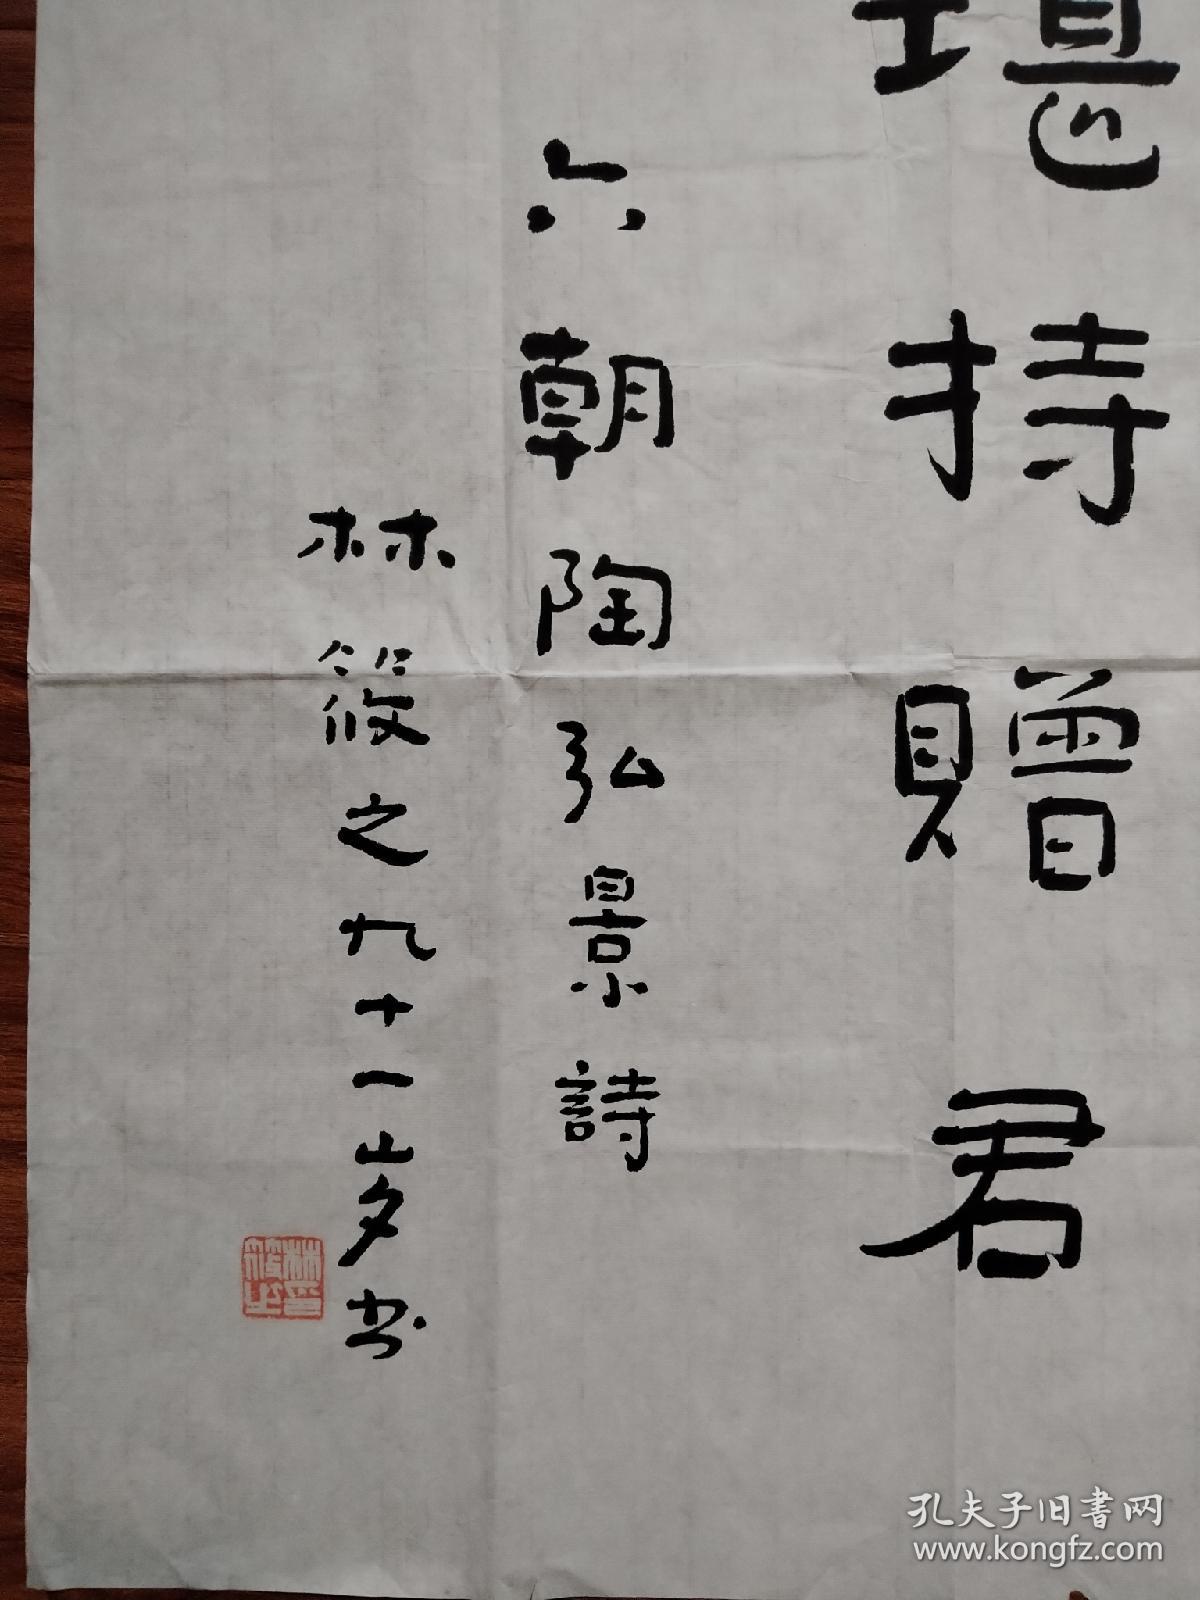 堪持贈君
六朝陶弘景詩
林筱之九十一岁书
林筱之印
孔夫子旧書网
www.kongfz.com